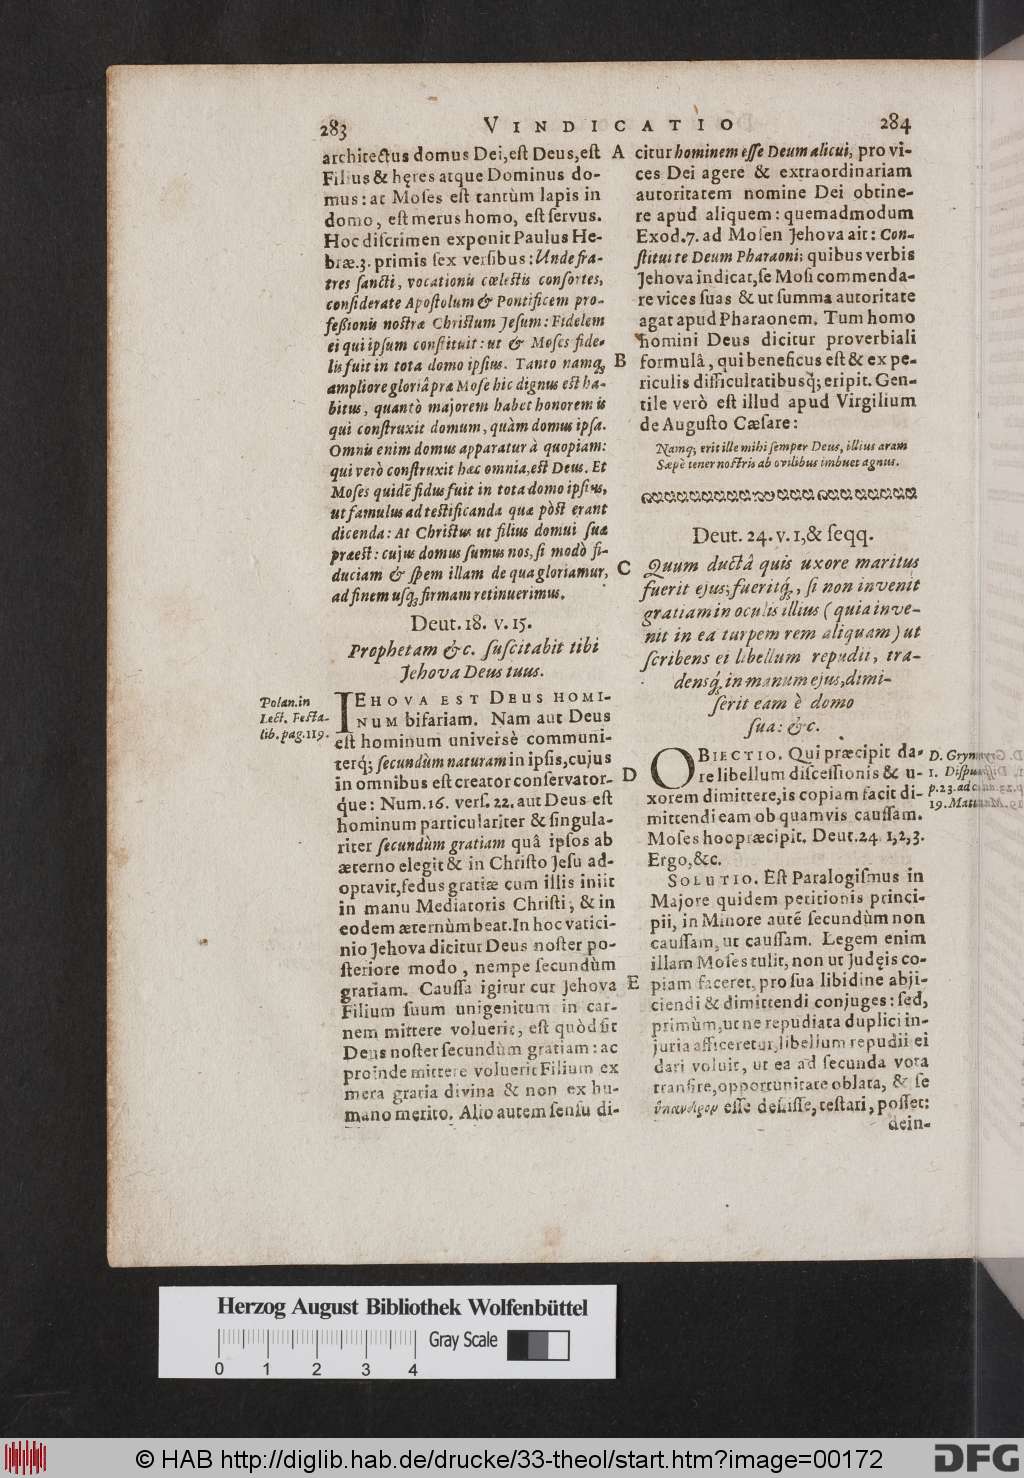 283 VINDICATIO 284
architectus domus Dei, est Deus, est
Filius & hęres atque Dominus do-
mus: at Moses est tantùm lapis in
domo, est merus homo, est servus.
Hoc discrimen exponit Paulus He-
bræ.3. primis sex versibus: Unde fra-
tres sancti, vocationis cœlestis consortes,
considerate Apostolum & Pontificem pro-
feßionis nostræ Christum Jesum: Fidelem
ei qui ipsum constituit: ut & Moses fide-
lis fuit in tota domo ipsius. Tanto namq;
ampliore gloriâ præ Mose hic dignus est ha-
bitus, quantò majorem habet honorem is
qui construxit domum, quàm domus ipsa.
Omnis enim domus apparatur à quopiam:
qui verò construxit hæc omnia, est Deus. Et
Moses quidē fidus fuit in tota domo ipsius,
ut famulus ad testificanda quæ pòst erant
dicenda: At Christus ut filius domui suæ
præest: cujus domus sumus nos, si modò fi-
duciam & spem illam de qua gloriamur,
ad finem usq; firmam retinuerimus.
Deut. 18. v. 15.
Prophetam &c. suscitabit tibi
Jehova Deus tuus.
Polan. in
Lect. Festa-
lib. pag. 119.
IEHOVA EST DEUS HOMI-
NUM bifariam. Nam aut Deus
est hominum universè communi-
terq́; secundùm naturam in ipsis, cujus
in omnibus est creator conservator-
q́ue: Num. 16. vers. 22. aut Deus est
hominum particulariter & singula-
riter secundùm gratiam quâ ipsos ab
æterno elegit & in Christo Jesu ad-
optavit, fedus gratiæ cum illis iniit
in manu Mediatoris Christi, & in
eodem æternùm beat. In hoc vatici-
nio Jehova dicitur Deus noster po-
steriore modo, nempe secundùm
gratiam. Caussa igitur cur Jehova
Filium suum unigenitum in car-
nem mittere voluerit, est quòd sit
Deus noster secundùm gratiam: ac
proinde mittere voluerit Filium ex
mera gratia divina & non ex hu-
mano merito. Alio autem sensu di-
A
B
C
D
E
citur hominem esse Deum alicui, pro vi-
ces Dei agere & extraordinariam
autoritatem nomine Dei obtine-
re apud aliquem: quemadmodum
Exod. 7. ad Mosen Jehova ait: Con-
stitui te Deum Pharaoni; quibus verbis
Jehova indicat, se Mosi commenda-
re vices suas & ut summa autoritate
agat apud Pharaonem. Tum homo
homini Deus dicitur proverbiali
formulâ, qui beneficus est & ex pe-
riculis difficultatibusq́; eripit. Gen-
tile verò est illud apud Virgilium
de Augusto Cæsare:
Namq; erit ille mihi semper Deus, illius aram
Sæpè tener nostris ab ovilibus imbuet agnus.
Deut. 24. v. 1, & seqq.
Quum ductâ quis uxore maritus
fuerit ejus; fueritq́;, si non invenit
gratiam in oculis illius (quia inve-
nit in ea turpem rem aliquam) ut
scribens ei libellum repudii, tra-
densq́; in manum ejus, dimi-
serit eam è domo
sua: &c.
OBIECTIO. Qui præcipit da-
re libellum discessionis & u-
xorem dimittere, is copiam facit di-
mittendi eam ob quamvis caussam.
Moses hoc præcipit. Deut. 24. 1, 2, 3.
Ergo, &c.
D. Gryn
1. Disp
p. 23. ad c
19. Mat
SOLUTIO. Est Paralogismus in
Majore quidem petitionis princi-
pii, in Minore autē secundùm non
caussam, ut caussam. Legem enim
illam Moses tulit, non ut Judęis co-
piam faceret, pro sua libidine abji-
ciendi & dimittendi conjuges: sed,
primùm, ut ne repudiata duplici in-
juria afficeretur, libellum repudii ei
dari voluit, ut ea ad secunda vota
transire, opportunitate oblata, & se
ὕπανδρον esse desiisse, testari, posset:
dein-
Herzog August Bibliothek Wolfenbüttel
Gray Scale
0 1 2 3 4
© HAB http://diglib.hab.de/drucke/33-theol/start.htm?image=00172
DFG